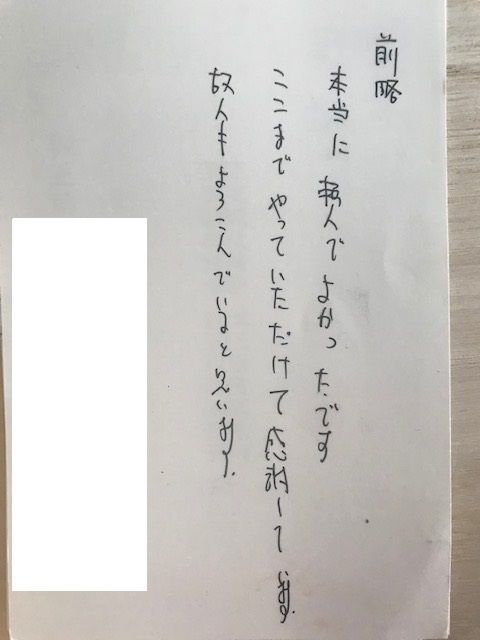 前略
本当に頼んでよかったです
ここまでやっていただけて感謝しています。
故人もよろこんでいると思います。